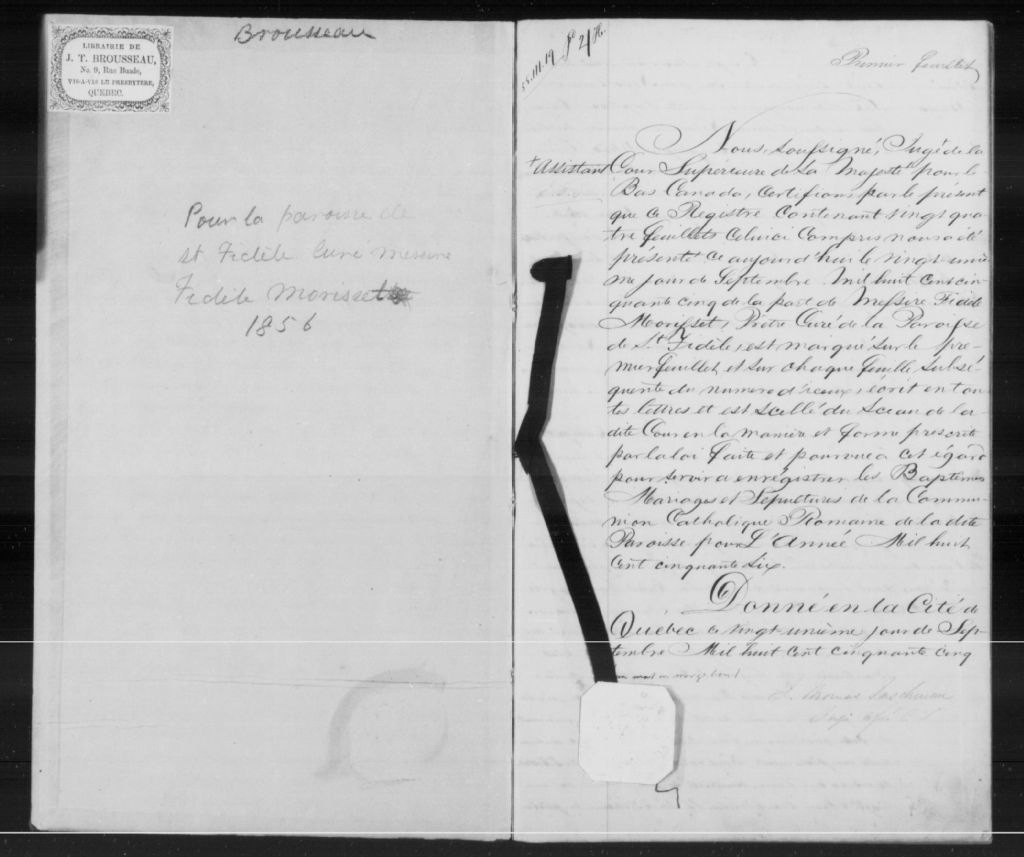 LIBRAIRIE DE
J. T. BROUSSEAU,
No. 9, Rue Buade,
VIS-A-VIS LE PRESBYTERE,
QUEBEC.
Brousseau
Pour la paroisse de
st Fidèle Curé messire
Fidèle Morisset
1856
Premier feuillet
Nous, soussigné, Juge de la
+ Assistant
Cour Supérieure de Sa Majesté pour le
Bas Canada, Certifions par le présent
que ce Registre Contenant vingt qua-
tre feuillets Celuici Compris nous a été
présenté ce aujourd'hui le vingt uniè-
me jour de Septembre Mil huit cent cin-
quante cinq de la part de Messire Fidèle
Morisset, Prêtre Curé de la Paroisse
de St. Fidèle, est marqué sur le pre-
mier feuillet et sur chaque feuille subsé-
quente du numero d'iceux, écrit en tou-
tes lettres et est scellé du Sceau de la
dite Cour en la manière et forme prescrite
par la loi faite et pourvue a cet égard
pour servir a enrégistrer les Baptêmes
Mariages et Sépultures de la Commu-
nion Catholique Romaine de la dite
Paroisse pour L'Année Mil huit
Cent cinquante Six.
Donné en la Cité de
Québec ce vingt unième jour de Sep-
tembre Mil huit Cent cinquante cinq
un mot en marge bon
J. Thomas Taschereau